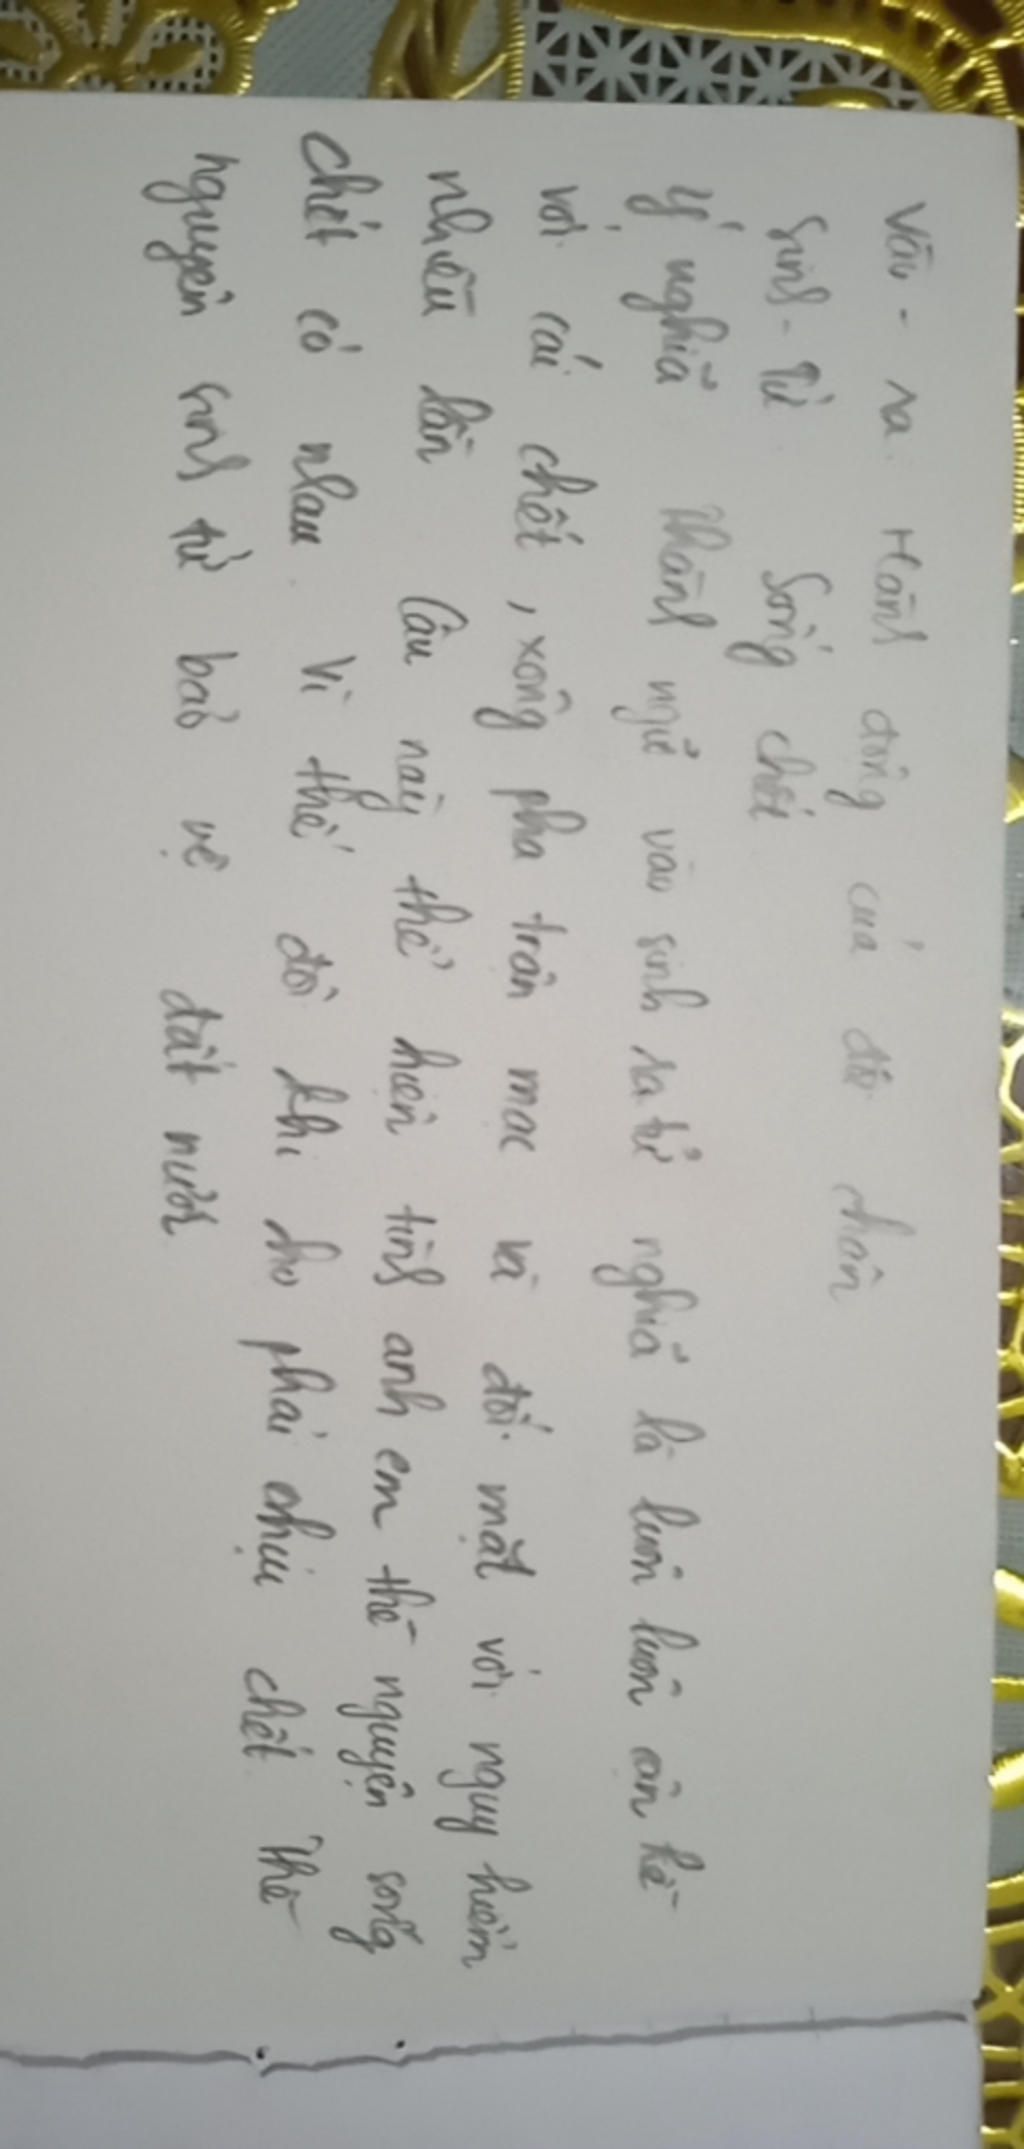 Vào - ra: Hành động của đôi chân
Sinh - tử: Sống chết
Ý nghĩa thành ngữ vào sinh ra tử nghĩa là luôn luôn cận kề
với cái chết, xông pha trận mạc và đối mặt với nguy hiểm
nhiều lần. Câu này thể hiện tình anh em thề nguyện sống
chết có nhau. Vì thế đôi khi họ phải chịu chết thề
nguyện sinh tử bảo vệ đất nước